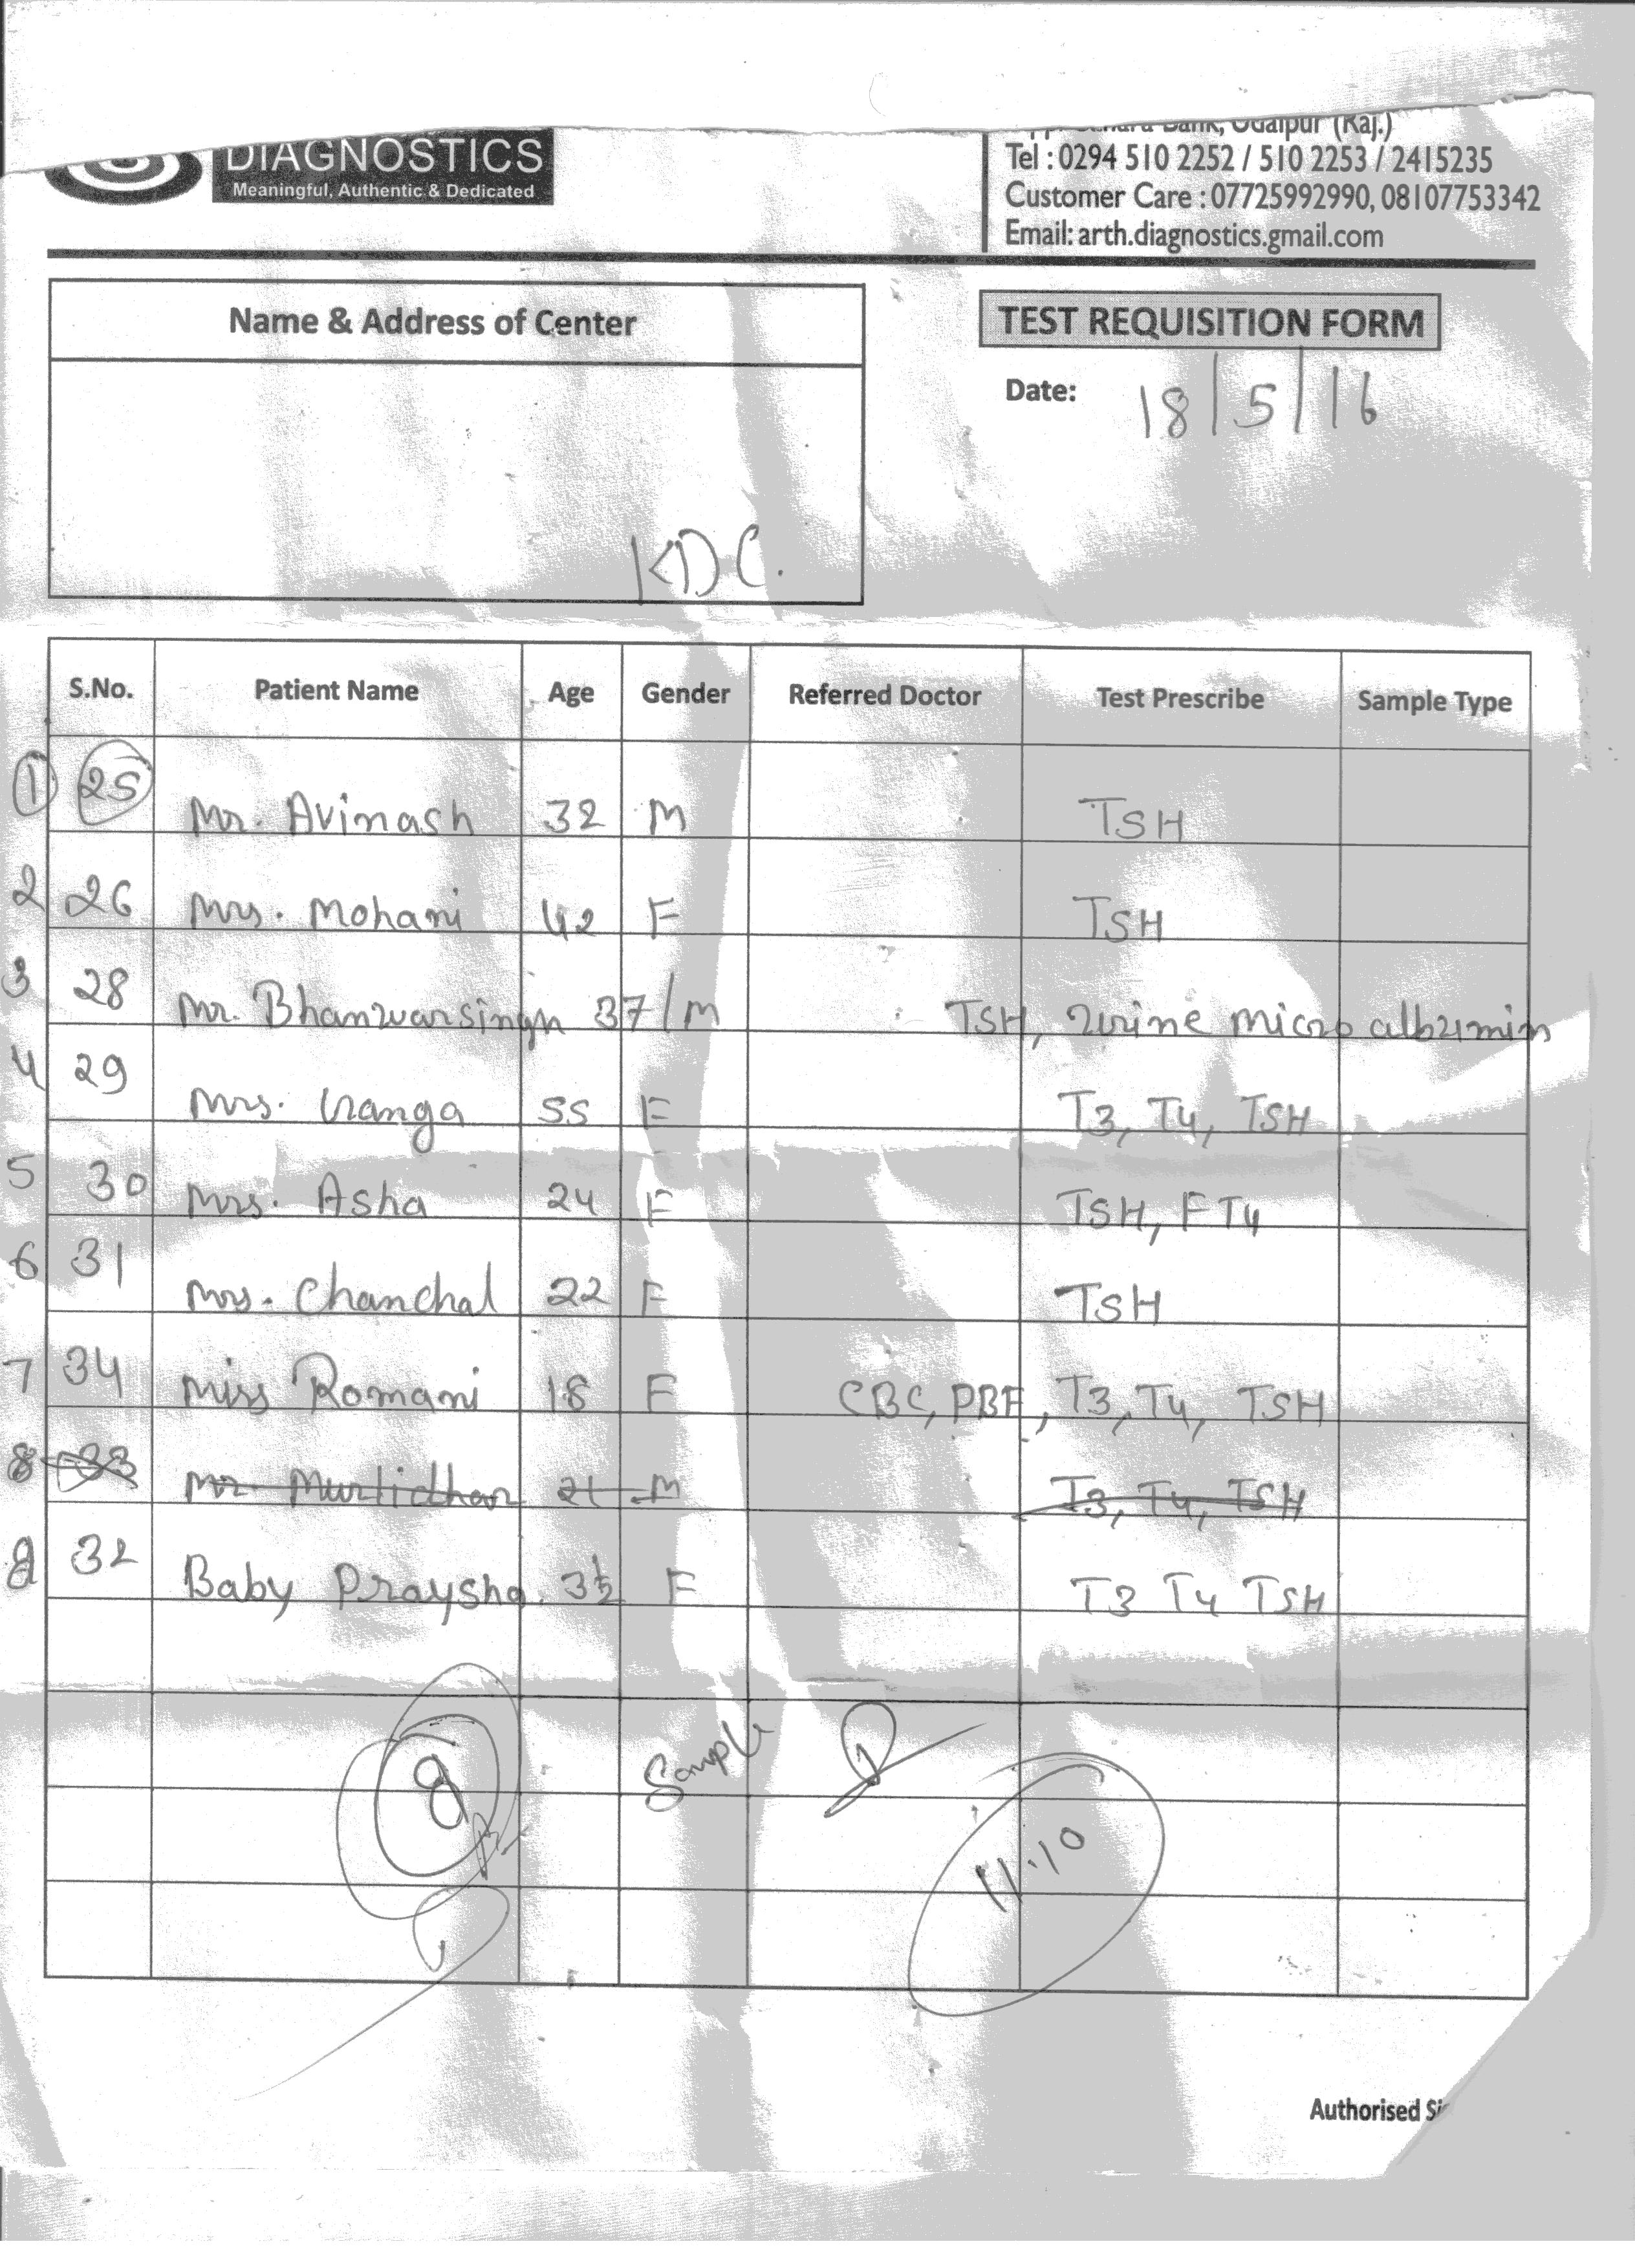 DIAGNOSTICS
Meaningful, Authentic & Dedicated
Bank, Udaipur (Raj.)
Tel : 0294 510 2252 / 510 2253 / 2415235
Customer Care : 07725992990, 08107753342
Email: arth.diagnostics.gmail.com
Name & Address of Center
KDC.
TEST REQUISITION FORM
Date: 18/5/16
S.No. Patient Name Age Gender Referred Doctor Test Prescribe Sample Type
1 25 Mr. Avinash 32 M TSH
2 26 Mrs. Mohani 42 F TSH
3 28 Mr. Bhanwarsingh 37/M TSH, Urine micro albumin
4 29 Mrs. Ganga 55 F T3, T4, TSH
5 30 Mrs. Asha 24 F TSH, FT4
6 31 Mrs. Chanchal 22 F TSH
7 34 Miss Romani 18 F CBC, PBF, T3, T4, TSH
8 33 Mr Murlidhar 21 M T3, T4, TSH
32 Baby Praysha. 3½ F T3 T4 TSH
8 Sample
11:10
Authorised